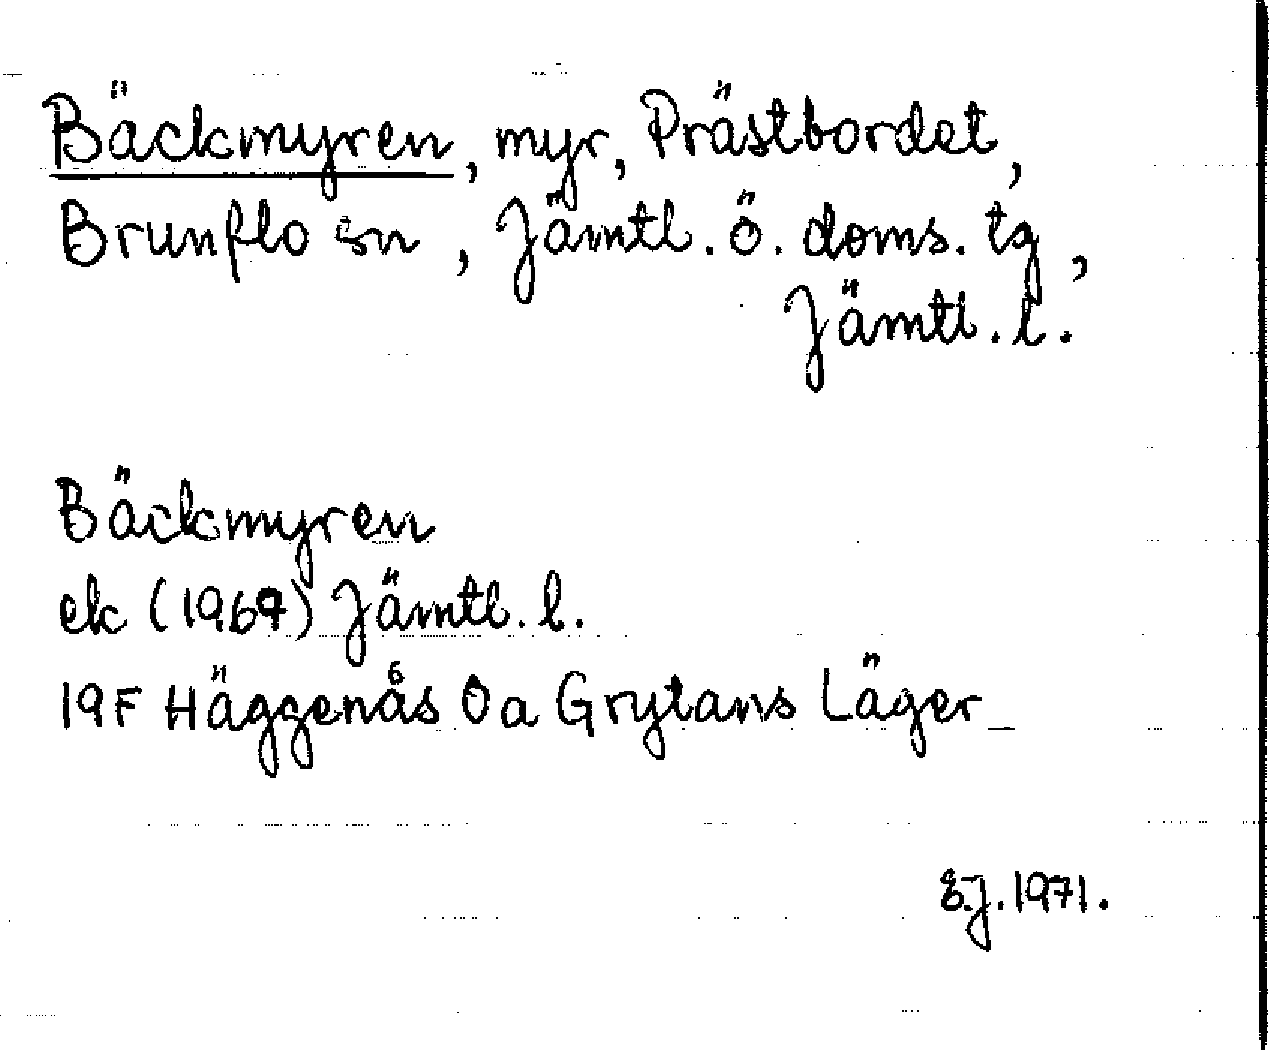 Bäckmyren, myr, Prästbordet,
Brunflo sn, Jämtl. ö. doms. tg,
Jämtl. l.
Bäckmyren
ek (1969) Jämtl. l.
19F Häggenås 0a Grytans Läger
E.J. 1971.